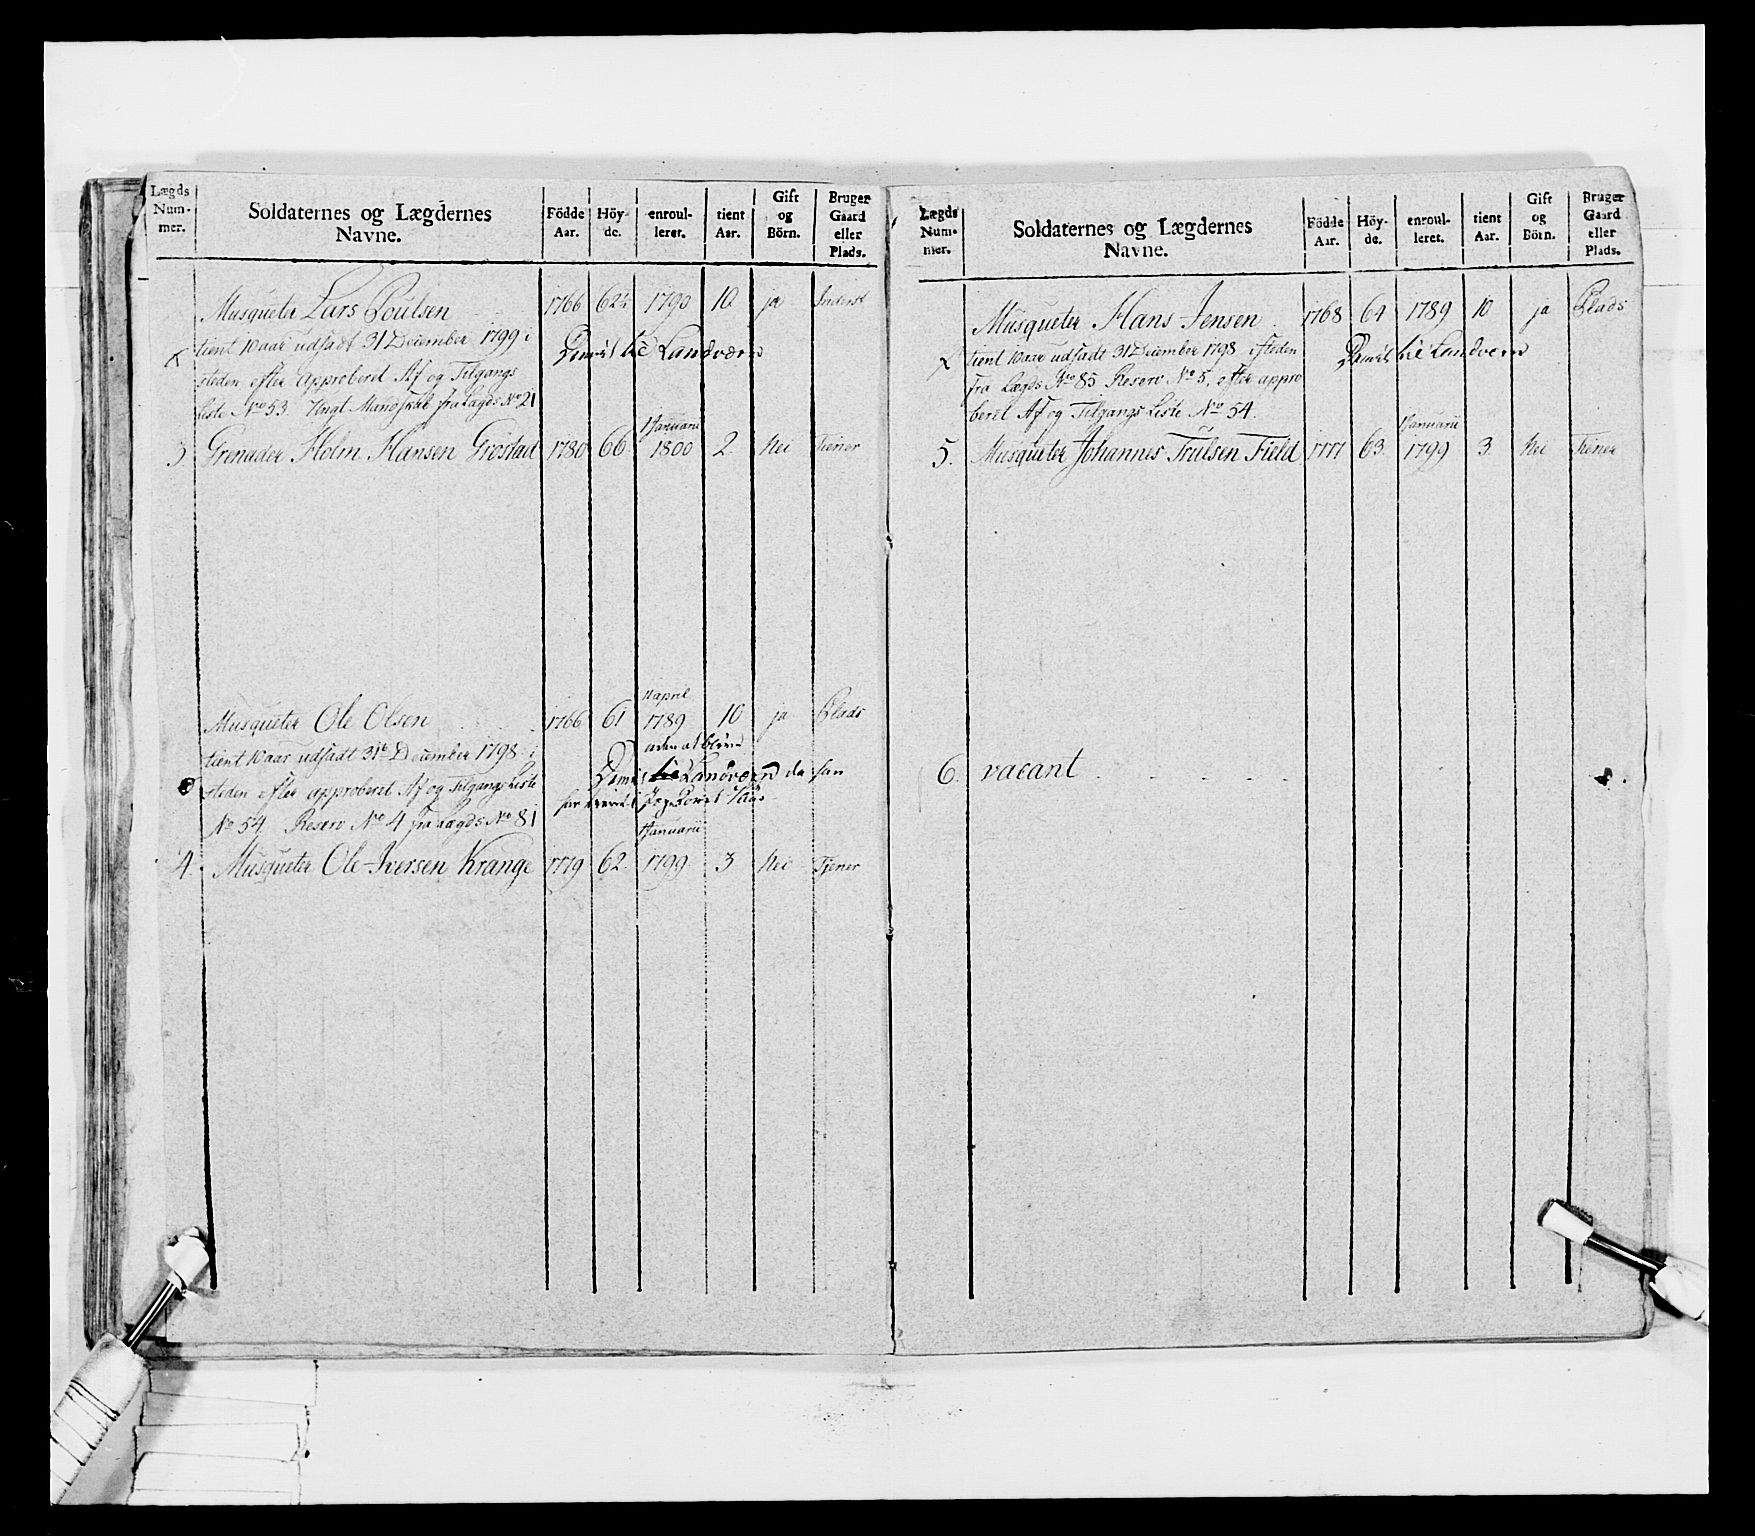 Lægds Num- mer. Soldaternes og Lægdernes Navne. Födde Aar. Höy- de. enroul- leret. tient Aar. Gift og Börn. Bruger Gaard eller Plads.
Musqueter Lars Poulsen 1766 62½ 1790 10 ja Inderst
tient 10 aar udsadt 31 December 1799 i
Dimit til Landværn
steden efter approberet Af og Tilgangs
Liste No 53. Ungt Mandskab fra Lægds No 21
1 Januarii
3 Grenader Holm Hansen Grostad 1780 66 1800 2 Nei Tiener
1 april
Musqueter Ole Olsen 1766 61 1789 10 ja Plads
tient 10 aar udsadt 31te December 1798 i
Dimit til Landværn da han
steden efter approberet Af og Tilgangs Liste
No 54 Reserv No 4 fra Lægds No 81
1 Januarii
4. Musqueter Ole Iversen Krange 1779 62. 1799 3 Nei Tjener
Lægds Num- mer. Soldaternes og Lægdernes Navne. Födde Aar. Höy- de. enroul- leret. tient Aar. Gift og Börn. Bruger Gaard eller Plads.
Musqueter Hans Jensen 1768 64 1789 10 ja Plads
tient 10 aar udsadt 31 December 1798 isteden
Dimit til Landværn
fra Lægds No 85 Reserv No 5, efter appro
beret Af og Tilgangs Liste No 54.
1 Januarii
5. Musqueter Johannes Trulsen Field 1777 63. 1799 3 Nei Tiener
6. vacant